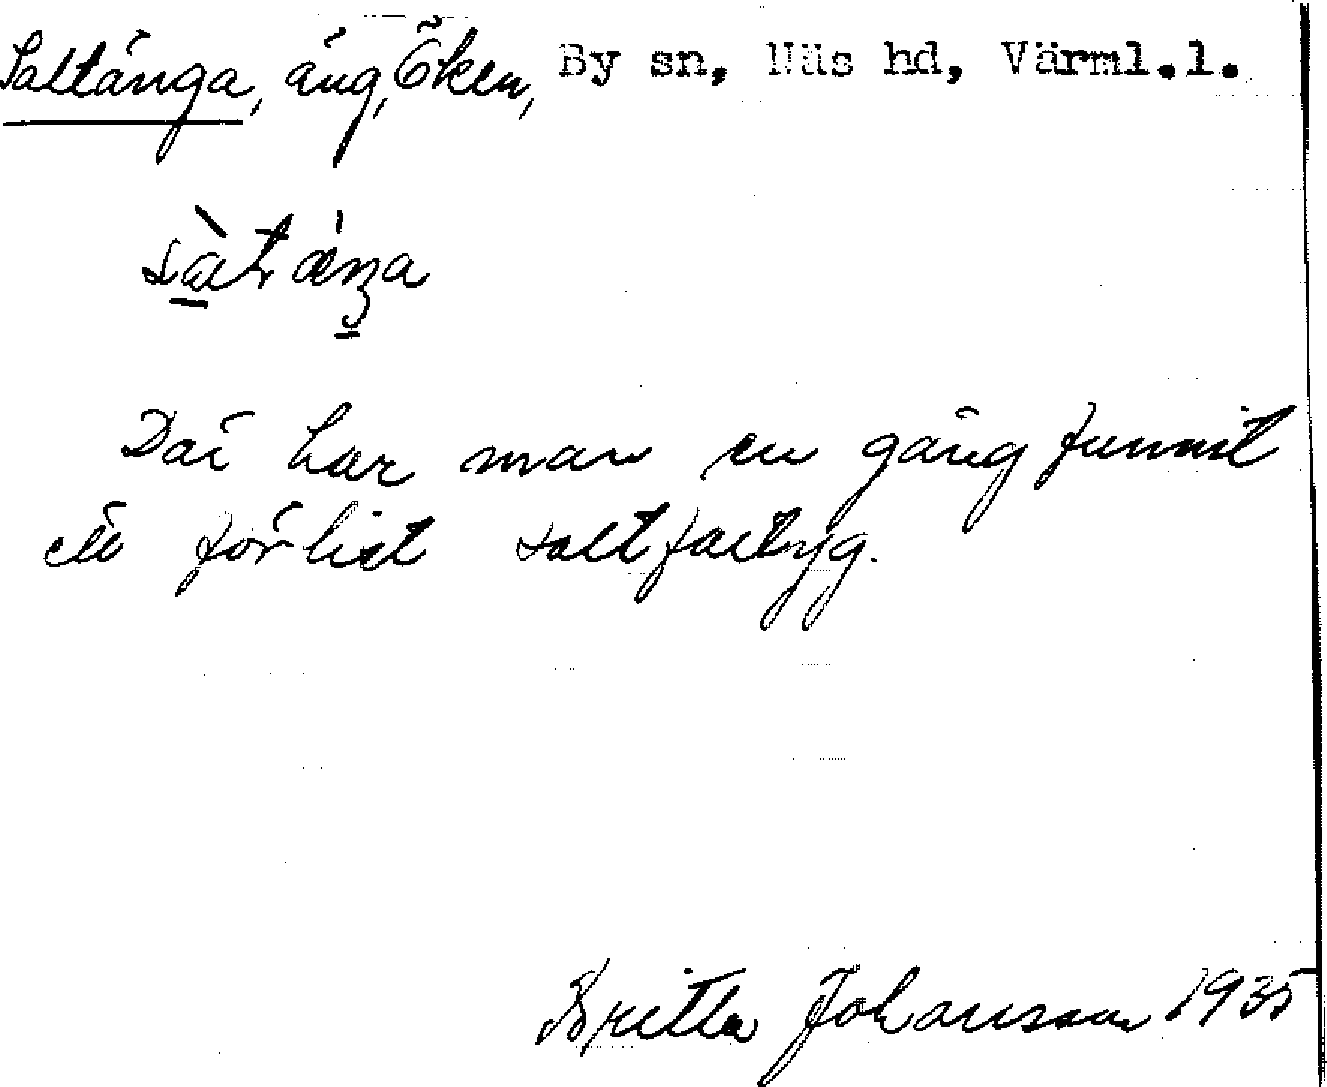 Saltänga, äng, Öken, By sn, Näs hd, Värml.l.
Där har man en gång funnit
ett förlist saltfartyg.
Britta Johansson 1935